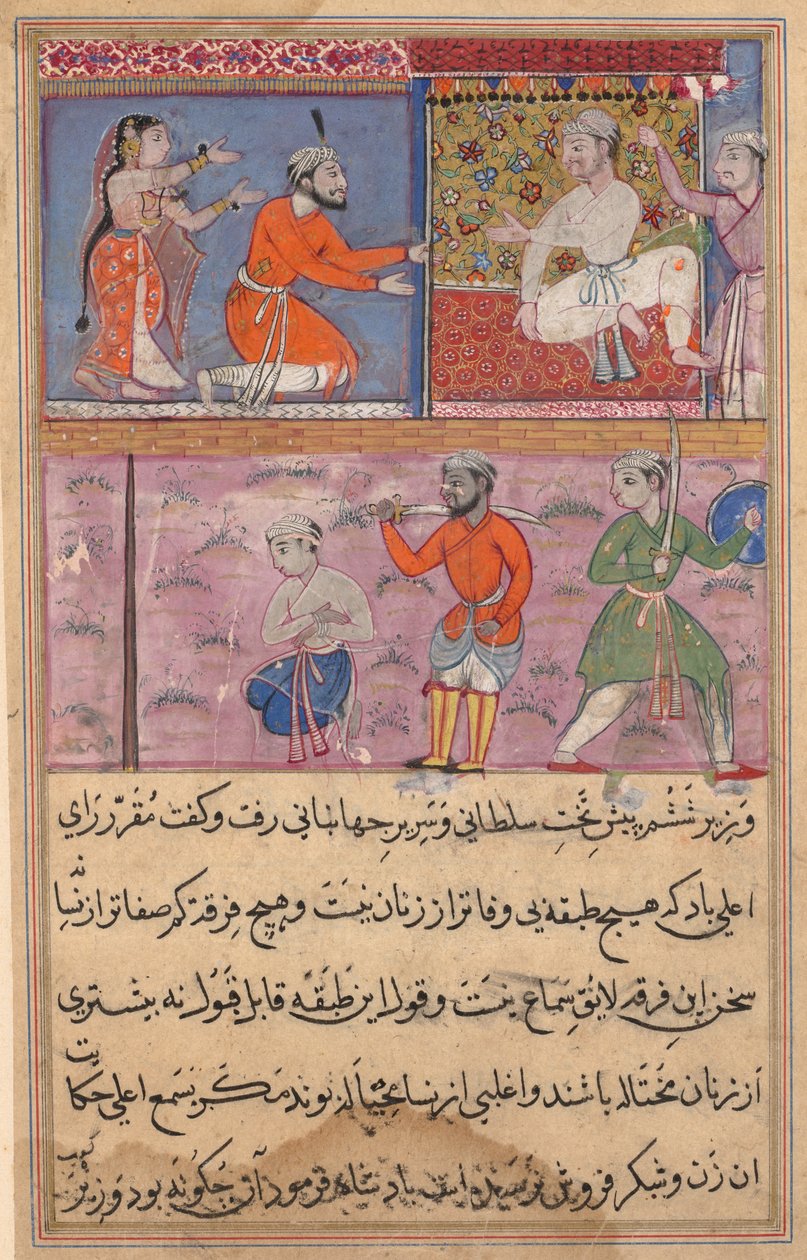 وَزِیرِ شَشُم پیشِ تَختِ سلطانی وَسَرِیرِ جهانبانی رفت وکفت مُقَرّر رَاي
اعلی باد که هیچ طبقه بی وفاتر از زنان نیَستَ وهیچ فِرقهٔ کم صفاتر از نِسا نه
سخنِ اینِ فرقه لایقِ سِمَاع نیستَ وقول این طَبقَه قابلِ قَبَوُل نه بیشتری
از زنان مُحتَاله باشند واغلبی از نسا مُحیاله بوند مَکَر بسَمعِ اعلی حکایت
ان زَن وشکر فروش نرسیده است بادشاه فرمود آن جَکُونَه بود وَزِیر کوید